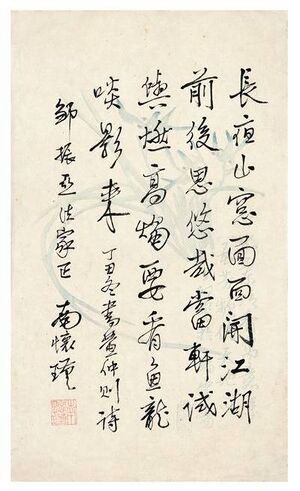 長夜山窓面面開江湖
前後思悠哉當軒試
與燃高燭要看魚龍
啖影來 丁丑冬書黃仲則詩
邹振亞法家正 南懷瑾